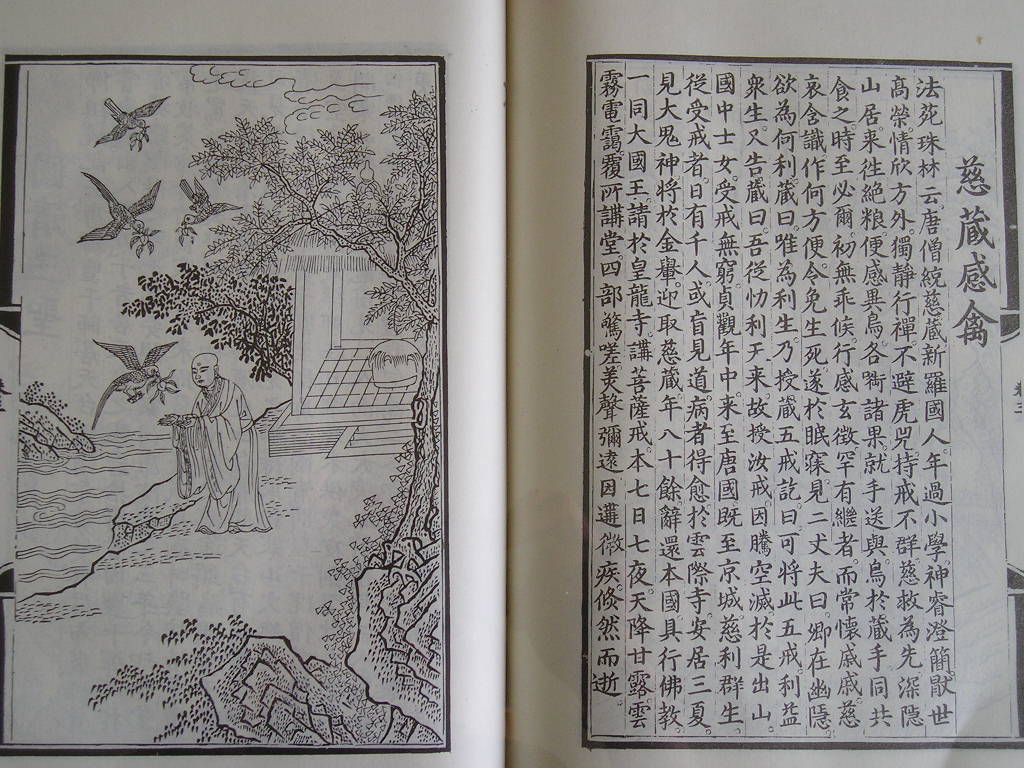 慈藏感禽
法苑珠林云。唐僧統慈藏。新羅國人。年過小學。神睿澄簡。猒世
高榮。情欣方外。獨靜行禪。不避虎兕。持戒不群。慈救為先。深隱
山居。来徃絶粮。便感異鳥。各銜諸果。就手送與。鳥於藏手。同共
食之。時至必爾。初無乖候。行感玄徵。罕有繼者。而常懷慼慼。慈
哀含識。作何方便。令免生死。遂於眠寐。見二丈夫曰。卿在幽隱。
欲為何利。藏曰。唯為利生。乃授藏五戒訖曰。可將此五戒。利益
衆生。又告藏曰。吾從忉利天来。故授汝戒。因騰空滅。於是出山。
國中士女。受戒無窮。貞觀年中。来至唐國。既至京城。慈利群生。
從受戒者。日有千人。或盲見道。病者得愈。於雲際寺。安居三夏。
見大鬼神將。於金轝。迎取慈藏。年八十餘。辭還本國。具行佛教。
一同大國。王請於皇龍寺。講菩薩戒本。七日七夜。天降甘露。雲
霧電靄。覆所講堂。四部驚嗟。美聲彌遠。因遘微疾。倐然而逝。
卷三